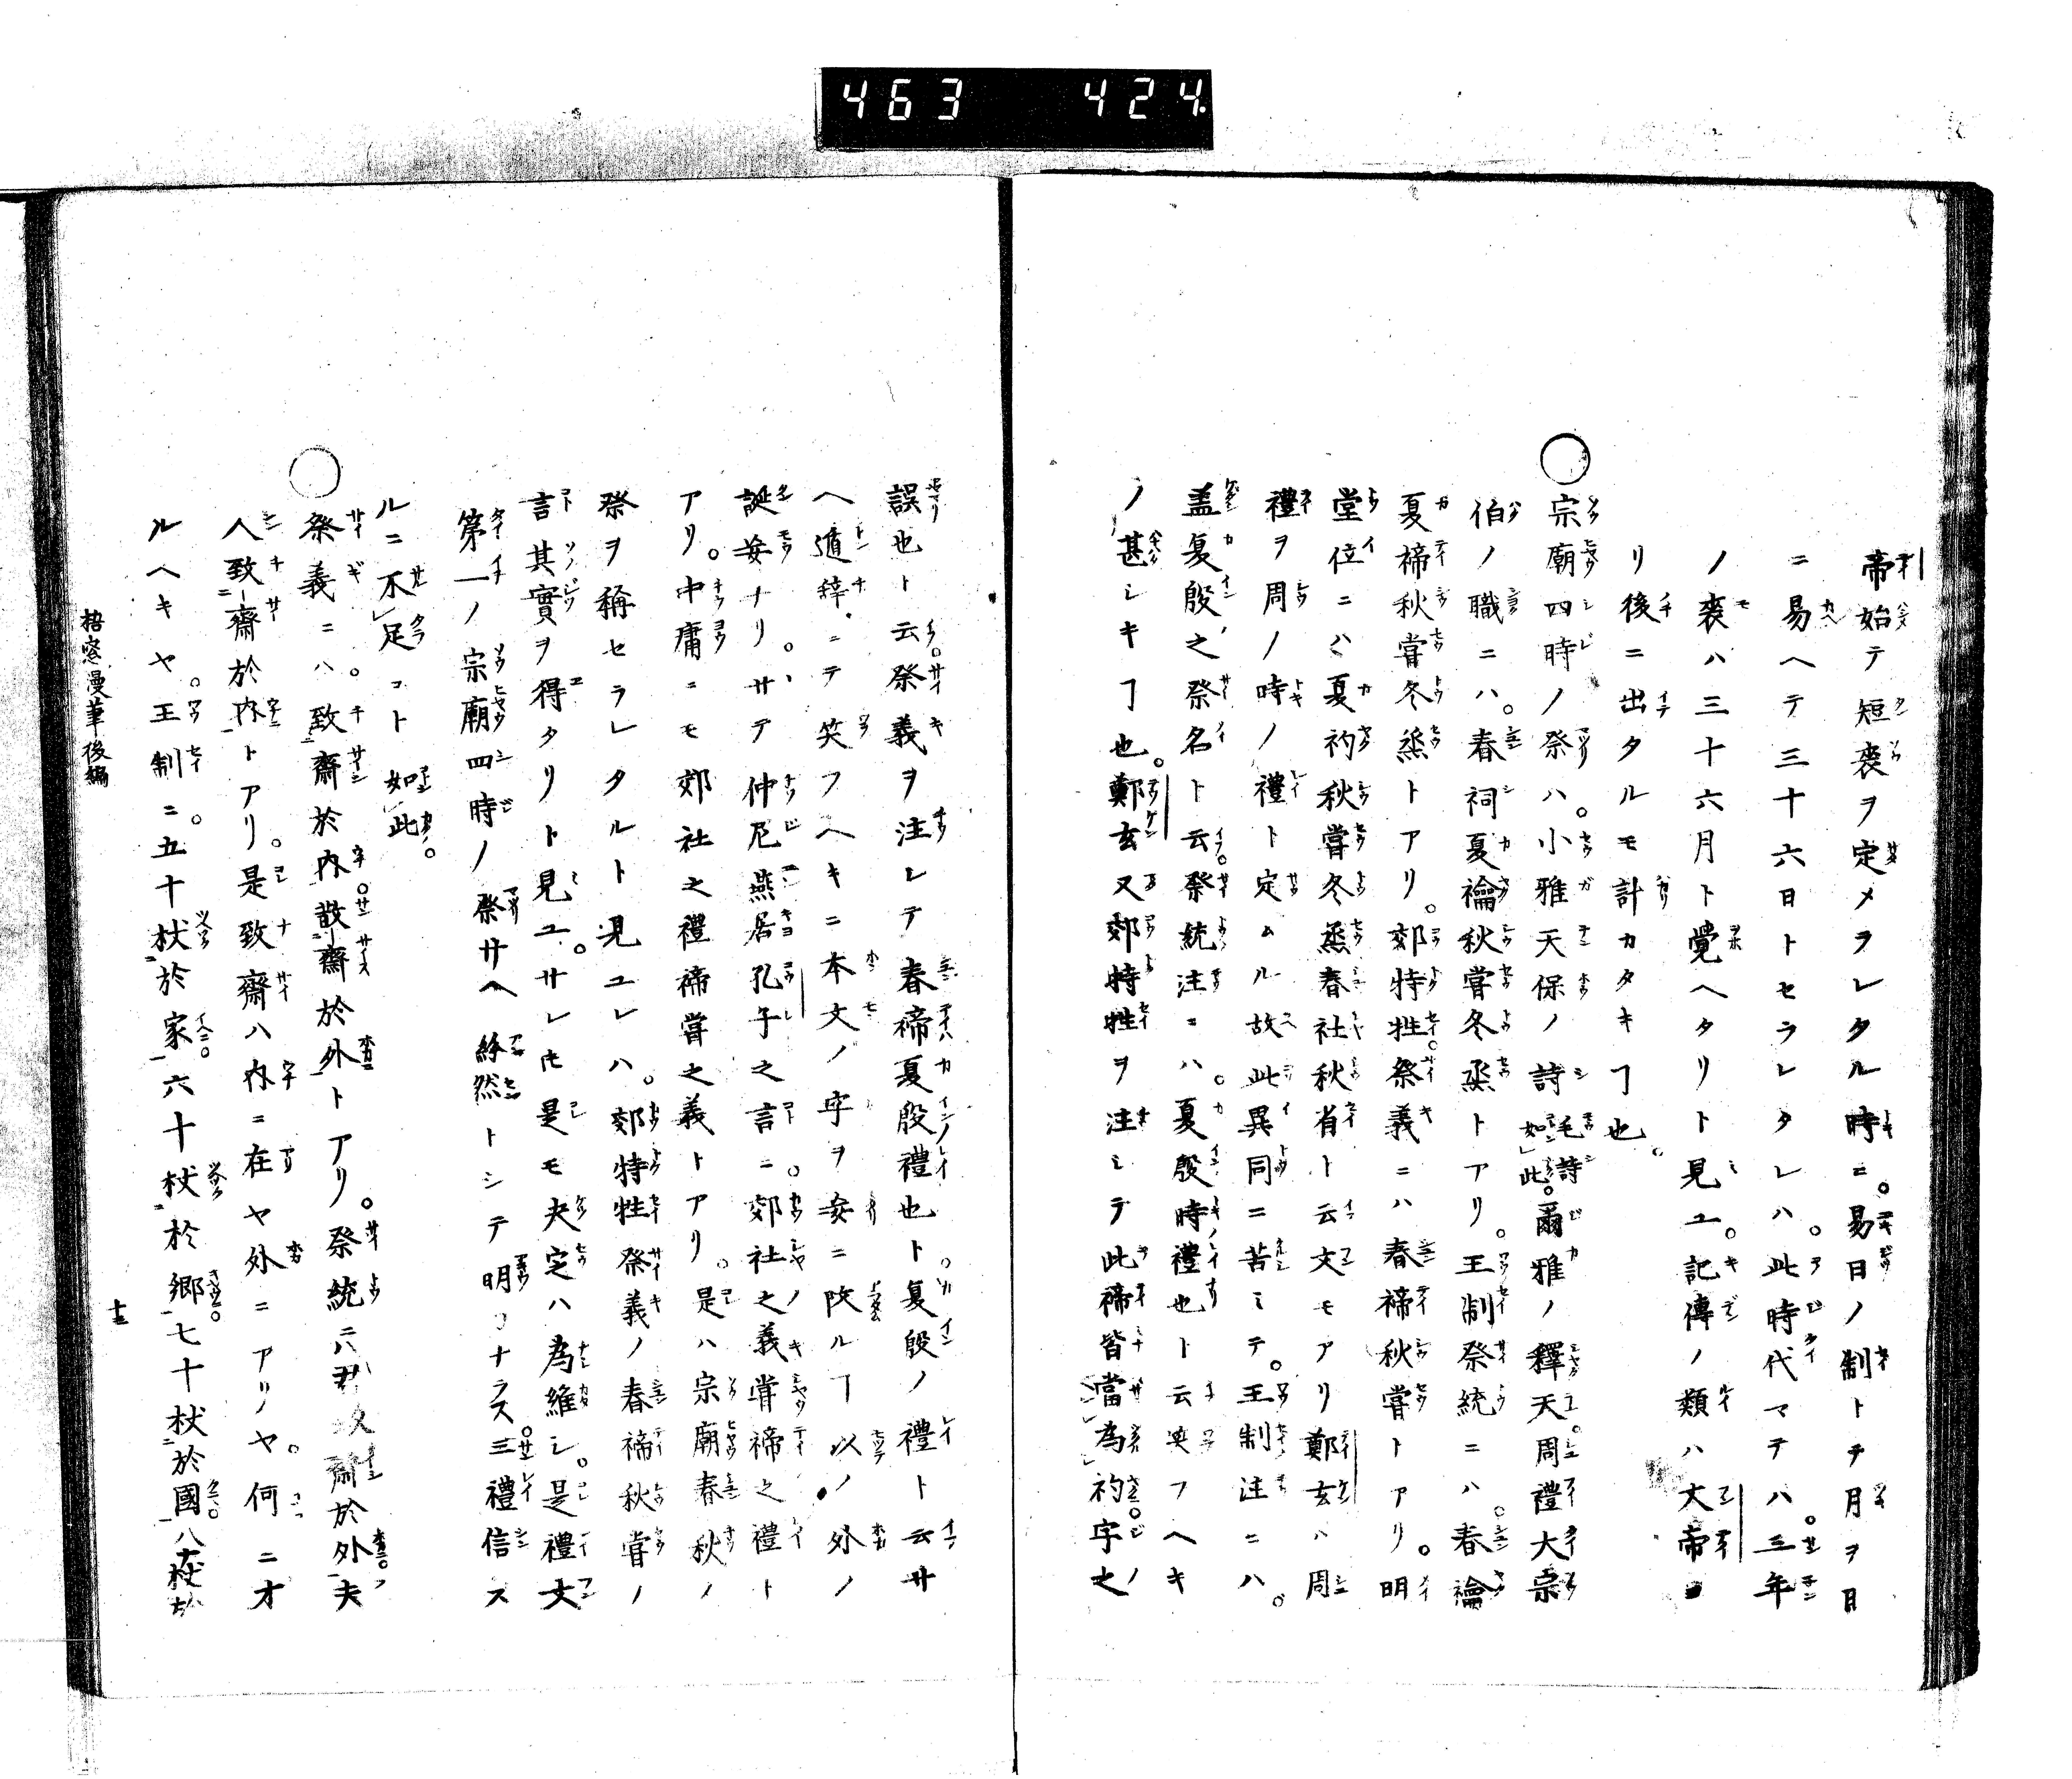 463 424
帝始テ短喪ヲ定メラレタル時ニ。易日ノ制トテ月ヲ日
ニ易ヘテ三十六日トセラレタレハ。此時代マテハ。三年
ノ喪ハ三十六月ト覺ヘタリト見ユ。記傳ノ類ハ文帝ヨ
リ後ニ出タルモ計カタキヿ也。
○宗廟四時ノ祭ハ。小雅天保ノ詩毛詩如此。爾雅ノ釋天。周禮大宗
伯ノ職ニハ。春祠夏禴秋嘗冬烝トアリ。王制祭統ニハ。春禴
夏禘秋嘗冬烝トアリ。郊特牲。祭義ニハ春禘秋嘗トアリ。明
堂位ニハ夏礿秋嘗冬烝春社秋省ト云文モアリ鄭玄ハ周
禮ヲ周ノ時ノ禮ト定ムル故此異同ニ苦ミテ。王制注ニハ。
盖夏殷之祭名ト云。祭統注ニハ。夏殷時禮也ト云笑フヘキ
ノ甚シキヿ也。鄭玄又郊特牲ヲ注シテ此禘皆當為礿字之
誤也ト云。祭義ヲ注シテ春禘夏殷禮也ト。夏殷ノ禮ト云サ
ヘ遁辞ニテ笑フヘキニ本文ノ字ヲ妄ニ改ルヿ以ノ外ノ
誕妄ナリ。サテ仲尼燕居孔子之言ニ。郊社之義嘗禘之禮ト
アリ。中庸ニモ郊社之禮禘嘗之義トアリ。是ハ宗廟春秋ノ
祭ヲ稱セラレタルト見ユレハ。郊特牲祭義ノ春禘秋嘗ノ
言其實ヲ得タリト見ユ。サレ𪜈是モ决定ハ為難シ。是禮文
第一ノ宗廟四時ノ祭サヘ紛然トシテ明ラナラス。三禮信ス
ルニ不足コト如此。
○祭義ニハ。致齋於内。散齋於外トアリ。祭統ニハ君致齋於外。夫
人致齋於内トアリ。是致齋ハ内ニ在ヤ外ニアリヤ。何ニオ
ルヘキヤ。王制ニ。五十杖於家。六十杖於郷。七十杖於國。八十杖於
梧窓漫筆後編
十三